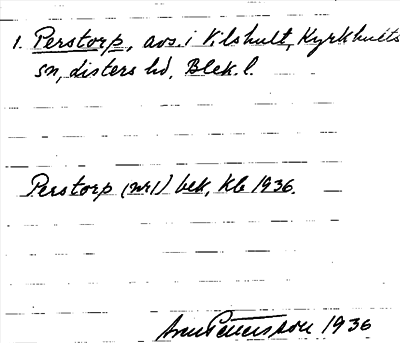 1. Perstorp, avs. i Vilshult, Kyrkhults
sn, Listers hd, Blek. l.
Perstorp (nr 1) bek, Kb 1936.
Pettersson 1936